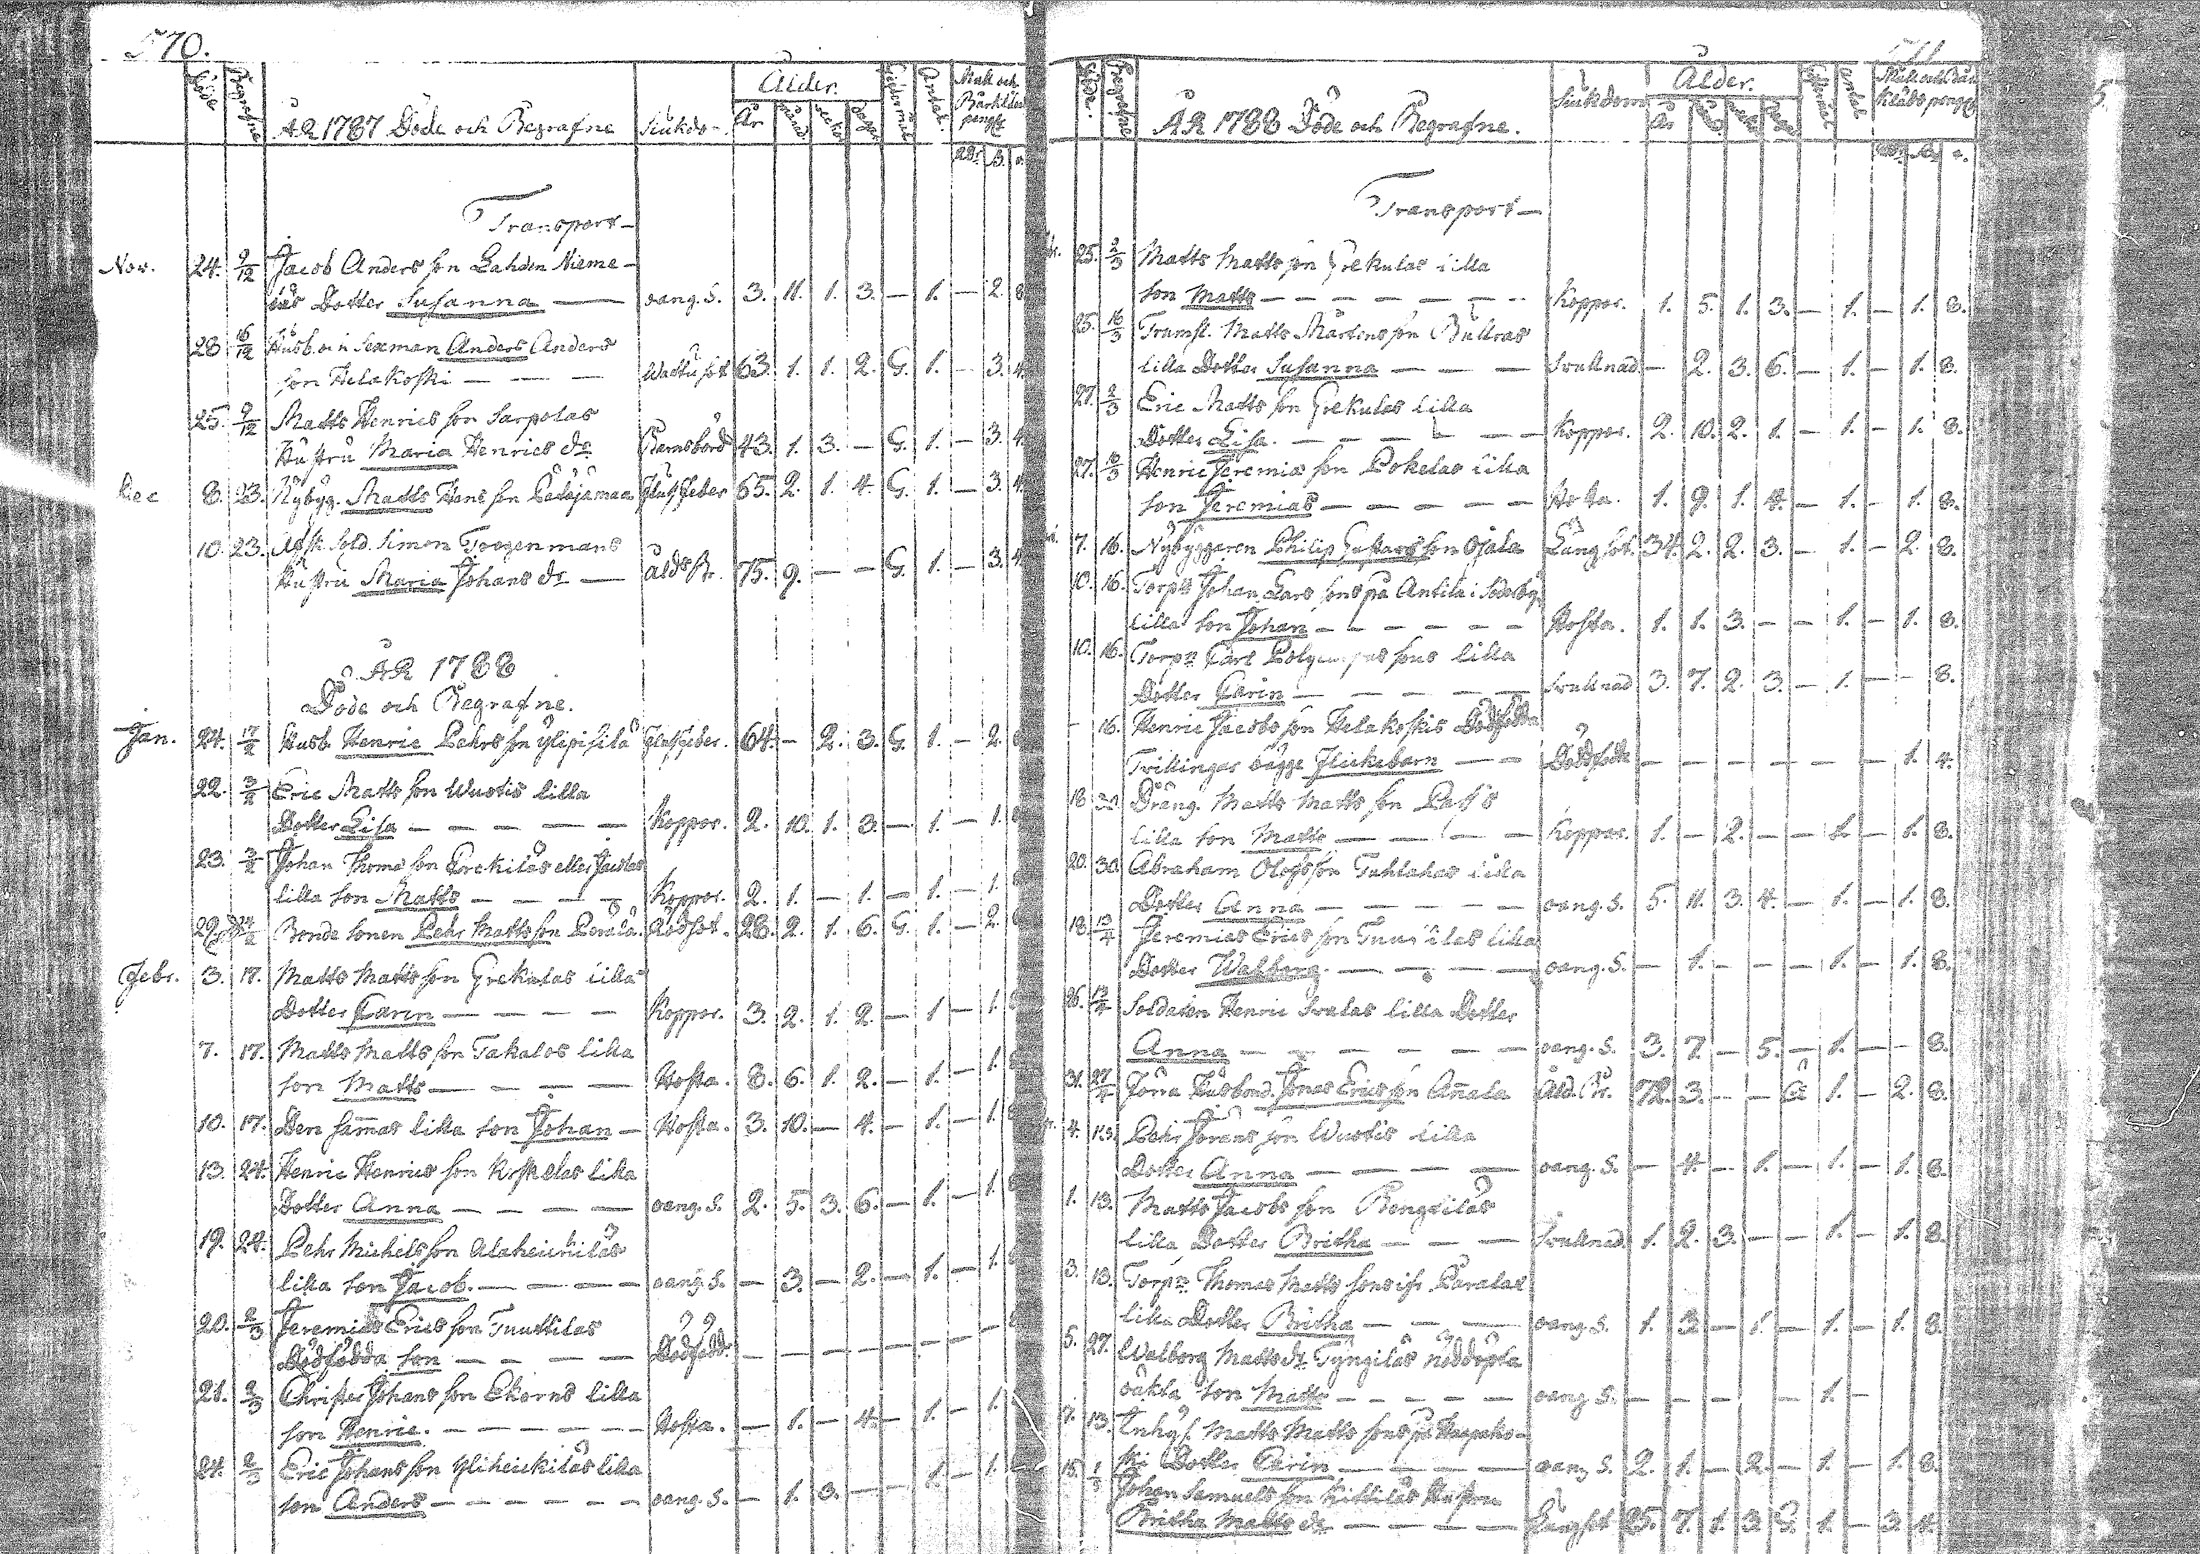 570.
Döde
Begrafne
ÅR 1787 Döde och Begrafne
Siukdo-
Ålder.
År
Månad
Veckor
Dagar
Antal.
Mull och
Transport-
Nov. 24. 9/12 Jacob Anders son Lahden Nieme-
läs Dotter Susanna — oang. S. 3. 11. 1. 3. — 1. — 2. 8
28 16/12 Husb. och Sexman Anders Anders
son Helakoski — — — Wattusot 63. 1. 1. 2. G. 1. — 3. 4.
25. 9/12 Matts Henrics son Sarpolas
Hustru Maria Henrics dr Barnsbörd 43. 1. 3. — G. 1. — 3. 4
Dec 8. 23. Nybyg. Matts Hans son Palojämaa 65. 2. 1. 4. G. 1. — 3. 4
10. 23. Afsk. Sold. Simon Torgenmans
Hustru Maria Johans dr — ålds Br. 75. 9. — — G. 1. — 3. 4
ÅR 1788
Döde och Begrafne.
Jan. 24. 17/2 Husb. Henric Pehrs son Ylipisilä 64. — 2. 3. G. 1. — 2.
22. 3/2 Eric Matts son Wuotis lilla
Dotter Lisa — — — — — Koppor. 2. 10. 1. 3. — 1. — 1.
23. 3/2 Johan Thomæ son eller
lilla son Matts — — — — Koppor. 2. 1. — 1. — 1. — 1.
29. Bonde sonen Pehr Matts son Perälä. Rödsot. 28. 2. 1. 6. G. 1. — 2.
Febr. 3. 17. Matts Matts son Grekulas lilla
Dotter Carin — — — — Koppor. 3. 2. 1. 2. — 1 — 1.
7. 17. Matts Matts son Takalos lilla
son Matts — — — — Hosta. 8. 6. 1. 2. — 1. — 1.
10. 17. Den sammas lilla son Johan — Hosta. 3. 10. — 4. — 1. — 1.
13. 24. Henric Henrics son Koskelas lilla
Dotter Anna — — — — oang. S. 2. 5. 3. 6. — 1. — 1.
19. 24. Pehr Michels son Alaheickiläs
lilla son Jacob. — — — — oang. S. — 3. — 2. — 1. — 1.
20. 2/3 Jeremias Erics son Tuuttilas
Dödfödda son — — — — Dödfödd. — — — — — — —
21. 2/3 Christer Johans son Ekorns lilla
son Henric. — — — — — Hosta. — 1. — 4. — 1. — 1.
24. 2/3 Eric Johans son Yliheickiläs lilla
son Anders — — — — — oang. S. — 1. 3. — — 1. — 1.
Döde.
Begrafne
ÅR 1788 Döde och Begrafne.
Siukdom
Ålder.
År
Antal
Transport-
25. 2/3 Matts Matts son Grekulas lilla
son Matts — — — — — — Koppor. 1. 5. 1. 3. — 1. — 1. 8.
25. 16/3 Tramsl. Matts Mårtens son Bullras
lilla Dotter Susanna — — — Svullnad — 2. 3. 6. — 1. — 1. 8.
27. 2/3 Eric Matts son Grekulas lilla
Dotter Lisa. — — — — — Koppor. 2. 10. 2. 1. — 1. — 1. 8.
27. 16/3 Henric Jeremiæ son Pokelas lilla
son Jeremias — — — — — Hosta. 1. 9. 1. 4. — 1. — 1. 8.
7. 16. Nybyggaren Philip Gustavs son Ojala Lång sot. 34. 2. 2. 3. — 1. — 2. 8.
10. 16. Torpr Johan Lars sons på Antila i Söderby
lilla son Johan — — — — — Hosta. 1. 1. 3. — — 1. — 1. 8.
10. 16. Torpr Carl sons lilla
Dotter Carin — — — — — Svullnad 3. 7. 2. 3. — 1. — - 8.
- 16. Henric Jacobs son Helakoskis Dödfödda
Tvillingar bägge Flickebarn — — Dödfödde — — — — — — — 1. 4.
18 30. Dräng. Matts Matts son
lilla son Matts — — — — Koppor. 1. — 2. — — 1. — 1. 8.
20. 30. Abraham Olofs son Tuhlahas lilla
Dotter Anna — — — — — oang. S. 5. 11. 3. 4. — 1. — 1. 8.
18. 13/4 Jeremias Erics son Tuuttilas lilla
Dotter Walborg. — — — — oang. S. — 1. — — — 1. — 1. 8.
26. 13/4 Soldaten Henric Svalas lilla Dotter
Anna — — — — — — oang. S. 3. 7. — 5. — 1. — - 8.
31. 27/4 Förra Husbond. Jonas Erics son Annala Åld. Br. 72. 3. — — G 1. — 2. 8.
4. 13. Pehr Jörans son Wuotis lilla
Dotter Anna — — — — oang. S. — 4. — 1. — 1. — 1. 8.
1. 13. Matts Jacobs son Bengtiläs
lilla Dotter Britha — — — Svullnad. 1. 2. 3. — — 1. — 1. 8.
3. 13. Torpr Thomas Matts sons Paralas
lilla Dotter Britha — — — oang. S. 1. 3. — 1. — 1. — 1. 8.
5. 27. Walborg Matts dr Tyngiläs nöddöpta
oäkta son Matts — — — — oang S. — — — — — 1. —
7. 13. Inhys. Matts Matts sons på Haapako-
ski Dotter Carin — — — — oang S. 2. 1. — 2. — 1. — 1. 8.
15. Johan Samuels son Kittiläs Hustru
Britha Matts dr — — — — Lungsot 25. 7. 1. 3. G. 1. — 3. 4.